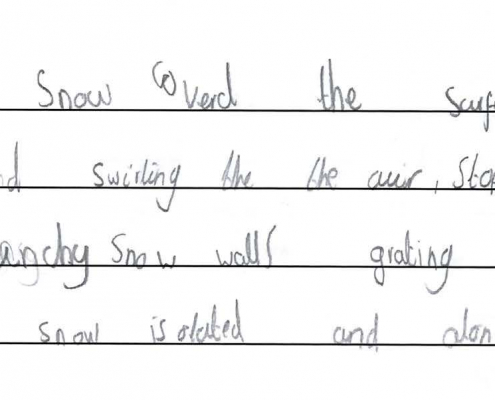 Snow coverd the surf
d swirling the the auir, Sto
anchy Snow walls grating
snow isolated and alon